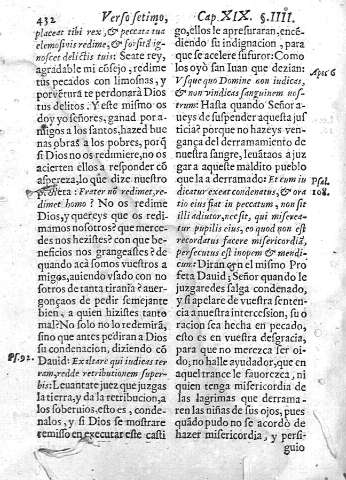 432 Verso setimo,
placeat tibi rex, & peccata tua
elemosinis redime, & forsitã ig-
noscet delictis tuis: Seate rey,
agradable mi cõsejo, redime
tus pecados con limosnas, y
porventura te perdonarà Dios
tus delitos. Y este mismo os
doy yo señores, ganad por a-
migos a los santos, hazed bue
nas obras à los pobres, porq̃
si Dios no os redimiere, no os
acierten ellos a responder cõ
aspereza, lo que dize nuestro
profeta: Frater nõ redimet, re-
dimet homo? No os redime
Dios, y quereys que os redi-
mamos nosotros? que merce-
des nos hezistes? con que be-
neficios nos grangeastes? de
quando acà somos vuestros a
migos, auiendo vsado con no
sotros de tanta tirania? auer-
gonçaos de pedir semejante
bien, a quien hizistes tanto
mal? No solo no lo redemirã,
sino que antes pediran a Dios
su condenacion, diziendo cõ
Ps. 92. Dauid: Exaltare qui iudicas ter-
ram, redde retributionem super-
bis: Leuantate juez que juzgas
la tierra, y da la retribucion, a
los soberuios, esto es, conde-
nalos, y si Dios se mostrare
remisso en executar este casti
Cap. XIX. §. IIII.
go, ellos le apresuraran, encẽ-
diendo su indignacion, para
que se acelere su furor: Como
los oyò san Iuan que dezian:
Vsquequo Domine non iudicas, Apoc 6
& non vindicas sanguinem nos-
trum: Hasta quando Señor a-
ueys de suspender aquesta jus
ticia? porque no hazeys ven-
gança del derramamiento de
nuestra sangre, leuãtaos a juz
gar a aqueste maldito pueblo
que la a derramado: Et cum iu-
dicatur exeat condenatus, & ora Psal.
tio eius fiat in peccatum, non sit 108.
illi adiutor, nec sit, qui miserea-
tur pupilis eius, eo quod non est
recordatus facere misericordiã,
persecutus est inopem & mendi-
cum: Diran en el mismo Pro
feta Dauid; Señor quando le
juzgaredes salga condenado,
y si apelare de vuestra senten-
cia a nuestra intercession, su o
racion sea hecha en pecado,
esto es en vuestra desgracia,
para que no merezca ser oi-
do, no halle ayudador, que en
aquel trance le fauorezca, ni
quien tenga misericordia de
las lagrimas que derrama-
ren las niñas de sus ojos, pues
quãdo pudo no se acordò de
hazer misericordia, y persi-
guio